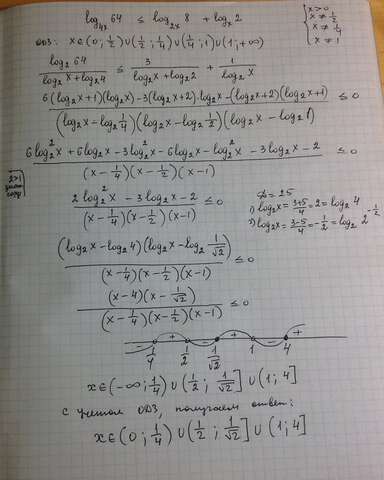 log₄ₓ64 ≤ log₂ₓ8 + logₓ2
{ x > 0
x ≠ 1/2
x ≠ 1/4
x ≠ 1
ОДЗ: x∈(0; 1/2)∪(1/2; 1/4)∪(1/4; 1)∪(1; +∞)
log₂64 / (log₂x + log₂4) ≤ 3 / (log₂x + log₂2) + 1 / log₂x
(6(log₂x+1)(log₂x) - 3(log₂x+2)·log₂x - (log₂x+2)(log₂x+1)) / ((log₂x - log₂1/4)(log₂x - log₂1/2)(log₂x - log₂1)) ≤ 0
(6log₂²x + 6log₂x - 3log₂²x - 6log₂x - log₂²x - 3log₂x - 2) / ((x - 1/4)(x - 1/2)(x - 1)) ≤ 0
2>1
знак
сохр
(2log₂²x - 3log₂x - 2) / ((x - 1/4)(x - 1/2)(x - 1)) ≤ 0
D = 25
1) log₂x = (3+5)/4 = 2 = log₂4
2) log₂x = (3-5)/4 = -1/2 = log₂2^(-1/2)
((log₂x - log₂4)(log₂x - log₂1/√2)) / ((x - 1/4)(x - 1/2)(x - 1)) ≤ 0
((x - 4)(x - 1/√2)) / ((x - 1/4)(x - 1/2)(x - 1)) ≤ 0
- + - + - +
1/4 1/2 1/√2 1 4
x∈(-∞; 1/4) ∪ (1/2; 1/√2] ∪ (1; 4]
с учетом ОДЗ, получаем ответ:
x∈(0; 1/4) ∪ (1/2; 1/√2] ∪ (1; 4]